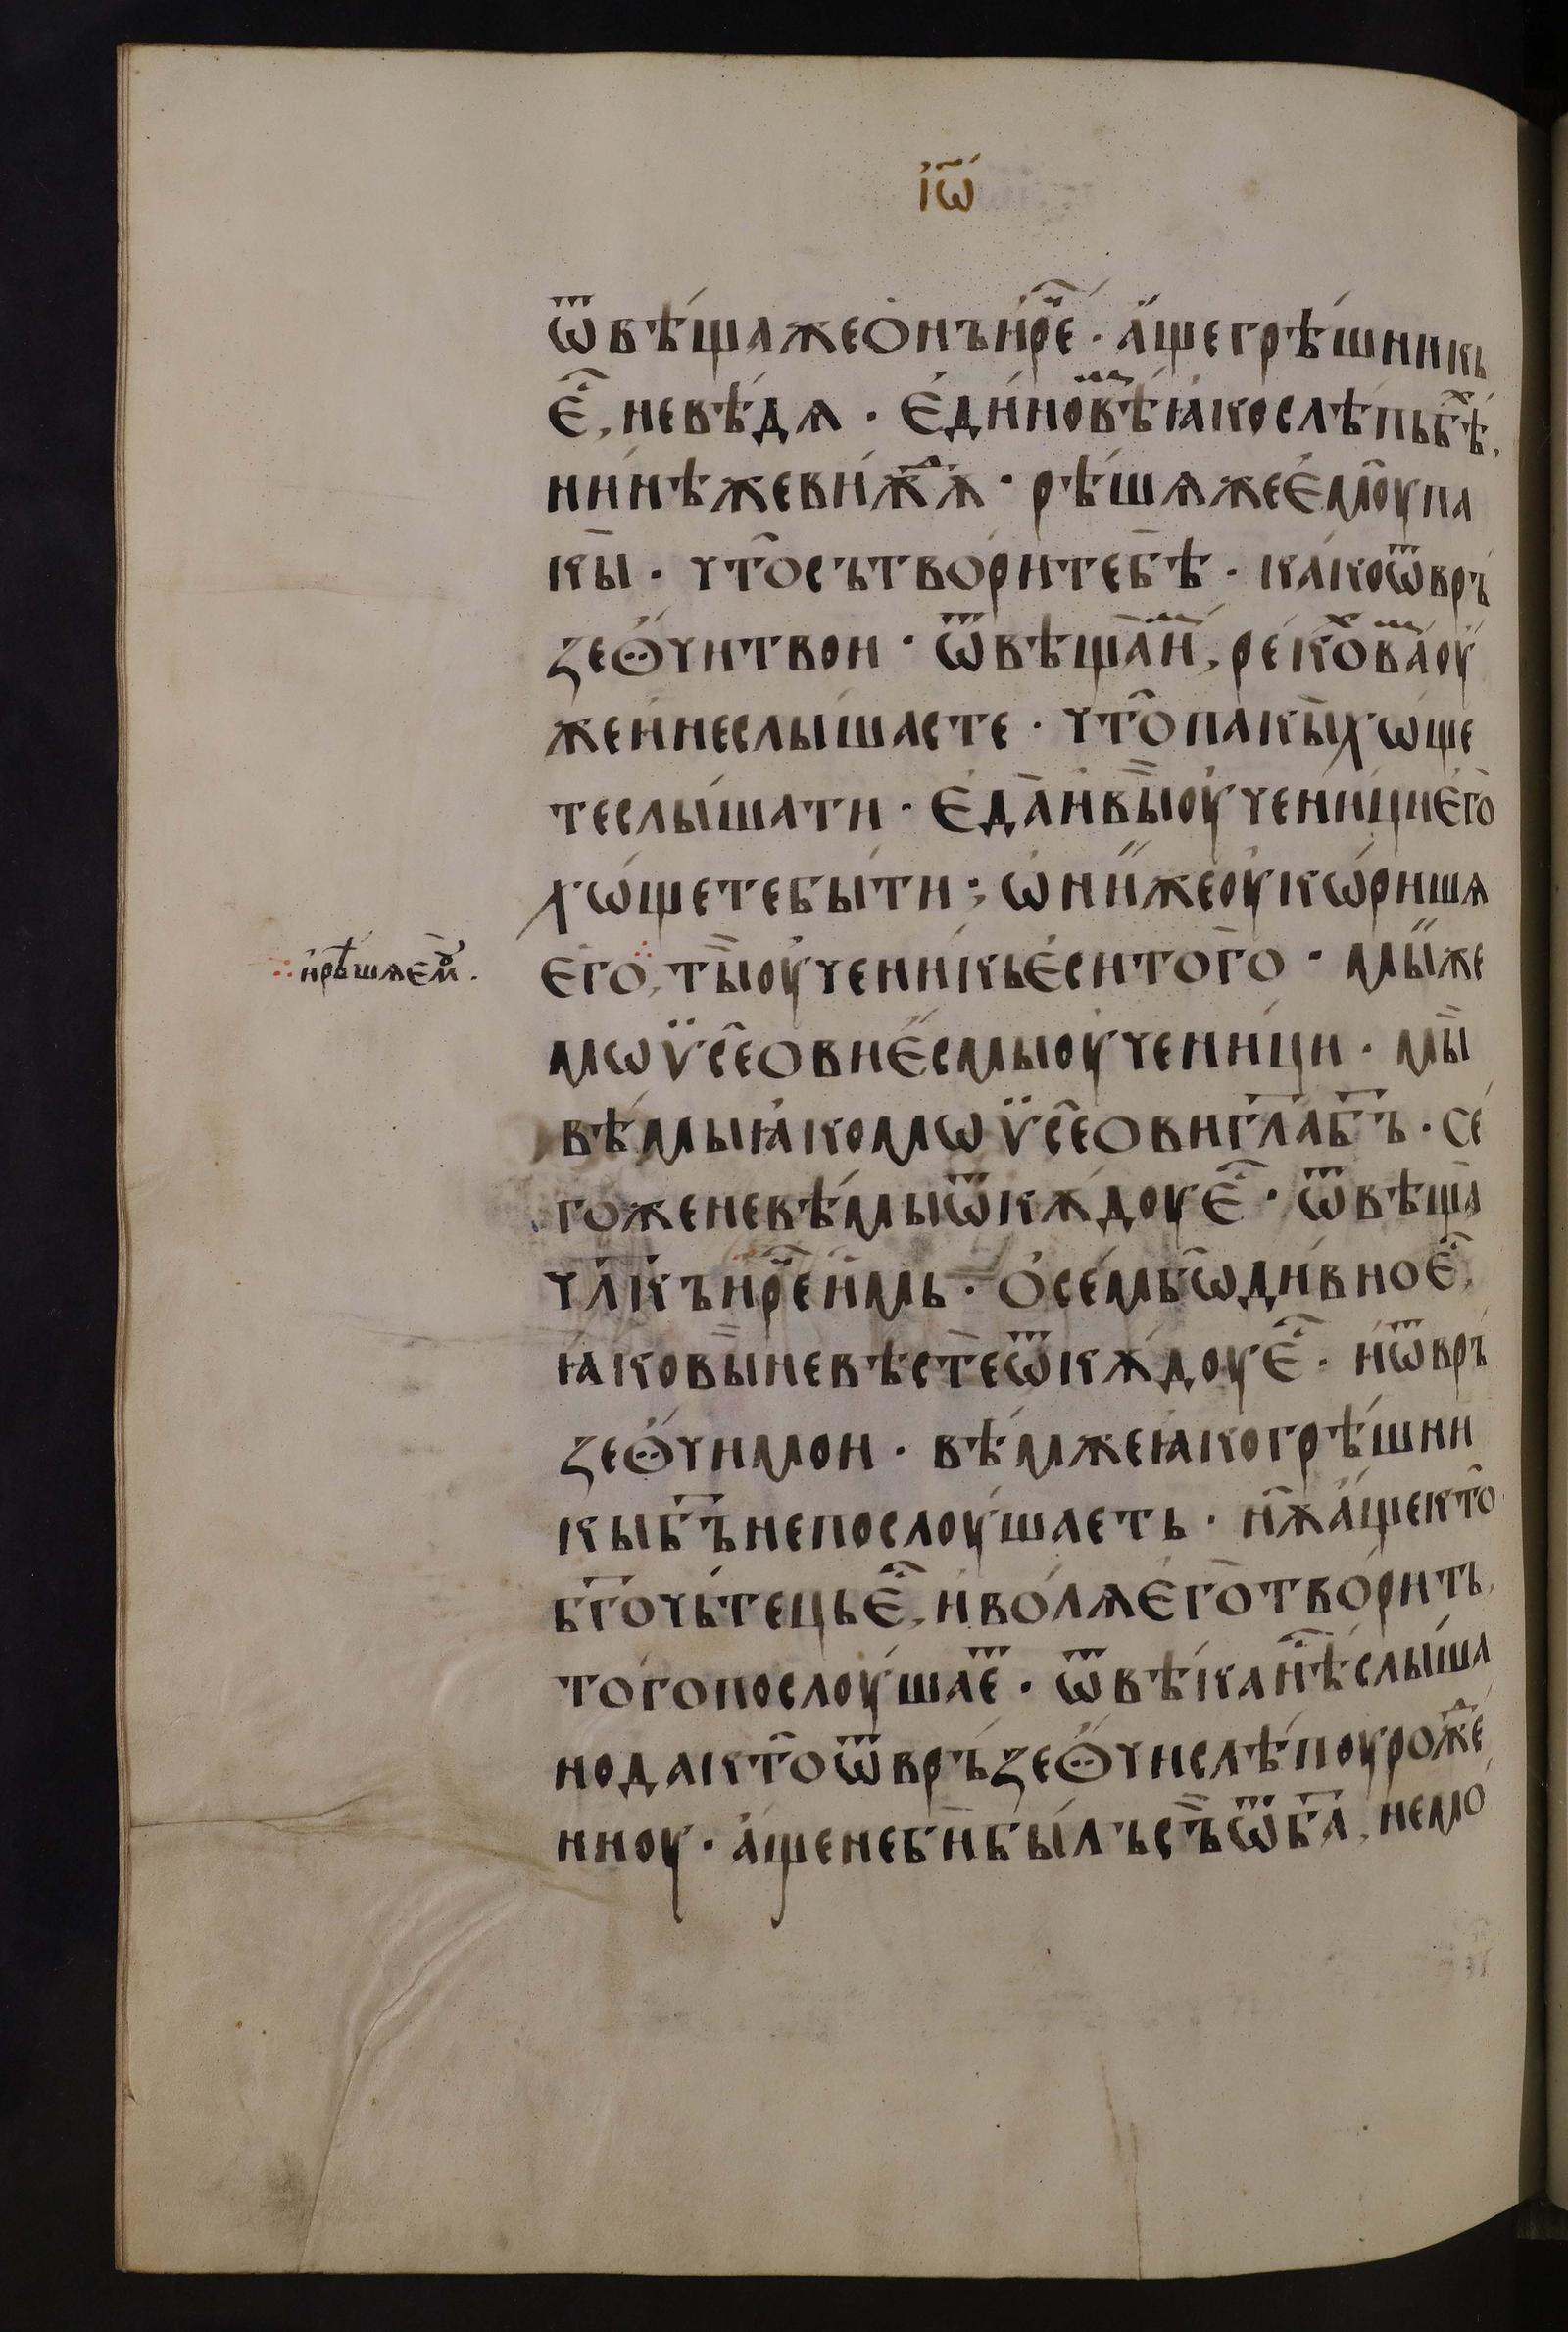 і҆ѡ҃
ѿвѣ́щаꙗжео҆нъи҆рⷱ҇е · а҆́щегрѣ́шникь
є҆ⷭ҇, невѣ́дѧ · є҆ди́но҆вѣⷨ҇ꙗ҆́кослѣ́пьбⷯѣ,
нн҃нѣжеви́жⷣѫ · рѣ́шѧжеє҆мꙋ̑па
кы̀ · что̑сътвори́тебѣ̀ · ка́коѿвръ́
зеꙨ҆́читвои · ѿвѣща̀и҆ⷨ, реко́ⷯва́ⷨоу
жеи҆неслы́шасте · что̑па́кыхѡ́ще
теслы́шати · є҆да̀и҆вы̀оу҆чени́цие҆го̀
хѡ́щетебы́ти : ѡ҆ни́жеоу҆кѡри́шѧ
є҆го̀, ты̀оу҆чени́кье҆́ситого̀ · мы́же
мѡѵ̈се̑овие҆смыоу҆чени́ци · мы̀
вѣ́мыꙗ҆́комѡѵ̈се̑овигл҃аб҃ъ · се
гоженевѣ́мыѿкѫ́доує҆ⷭ҇ · ѿвѣща̀
чл҃къи҆рⷱ҇еи҆́мь · о҆се́мбѡ̑ди́вноє҆ⷭ҇,
ꙗ҆́ковы̀невѣстѐѿкѫ́доує҆ⷭ҇ · и҆ѿвръ́
зеꙨ҆́чимои · вѣ́мжеꙗ҆́когрѣ́шни
кыб҃ънепослоу́шаеть · нѫ̑а҆́щекто̑
бг҃очьте́цье҆ⷭ҇, и҆во́лѧе҆го̀твори́ть,
того́послоу́шаеⷮ · ѿвѣ́канⷭ҇ѣслы́ша
нодакто̑ѿвръ́зеꙨ҆́числѣ́поуроⷤ́де
нноу · а҆́щенебѝбы́лъсъ̀ѿб҃а, немо
и҆рѣ́шѧе҆мꙋ̀.